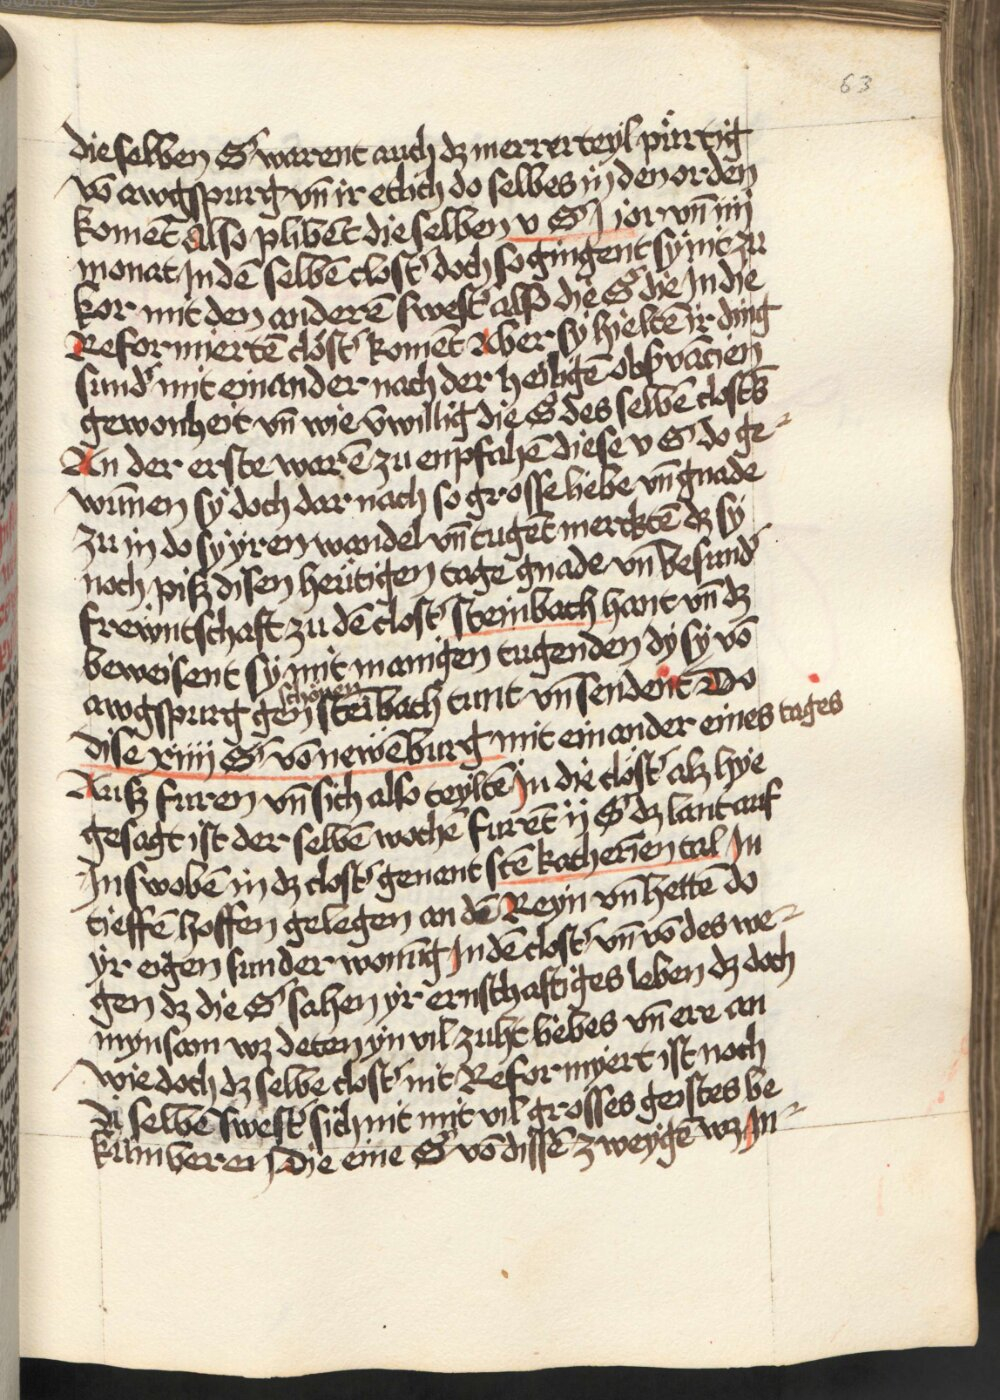 63
die selben S' warent auch dz merrer teyl pürtig
vō awgspurg vn̄ ir etlich do selbes in den orden
komēt Also plibēt die selben v S' j jor vn̄ iiij
monat In dē selbē clost' doch so gingent sy nit zu
kor mit den anderē swest' also die S' die In die
Reformiertē clöst' komēt Aber sy hieltē ir ding
sund' mit einander nach der heiligē obs'vācien
gewonheit vn̄ wie v̄willig die S' des selbē clost's
An der erste warē zu enpfahē diese v S' do ge-
wūnen sy doch dar nach so grosse liebe vn̄ gnade
zu in do sy yren wandel vn̄ tugēt merktē dz sy
noch piß disen heütigen tage gnade vn̄ besund'
frewntschaft zu dē clost' steinbach hant vn̄ dz
beweisent sy mit manigen tugenden dy sy vō
schönen
awgspurg gen steībach tunt vn̄ sendent Do
dise xiiij S' vō newēburg mit einander eines tages
Auß furen vn̄ sich also teyltē In die clöst' alz hye
gesagt ist der selbē wochē furēt ij S' dz lant auf
In swobē in dz clost' genant stē katherīen tal In
tieffē hoffen gelegen an dē Reyn vn̄ hettē do
yr eigen sunder wonūg In dē clost' vn̄ vō des we-
gen dz die S' sahen yr ernschaftiges leben dz doch
mynsam wz deten yn vil zuht liebes vn̄ ere an
wie doch dz selbe clost' nit Reformyert ist noch
di selbē swest' sich nit mit vil grosses geistes be
kümberen Die eine S' vō dissē zweygē wz In-